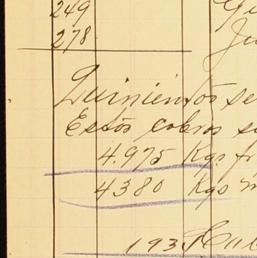 249
278
Quinientos se
Estos cobros s
4.975 Kgs fr
4380 Kgs
193